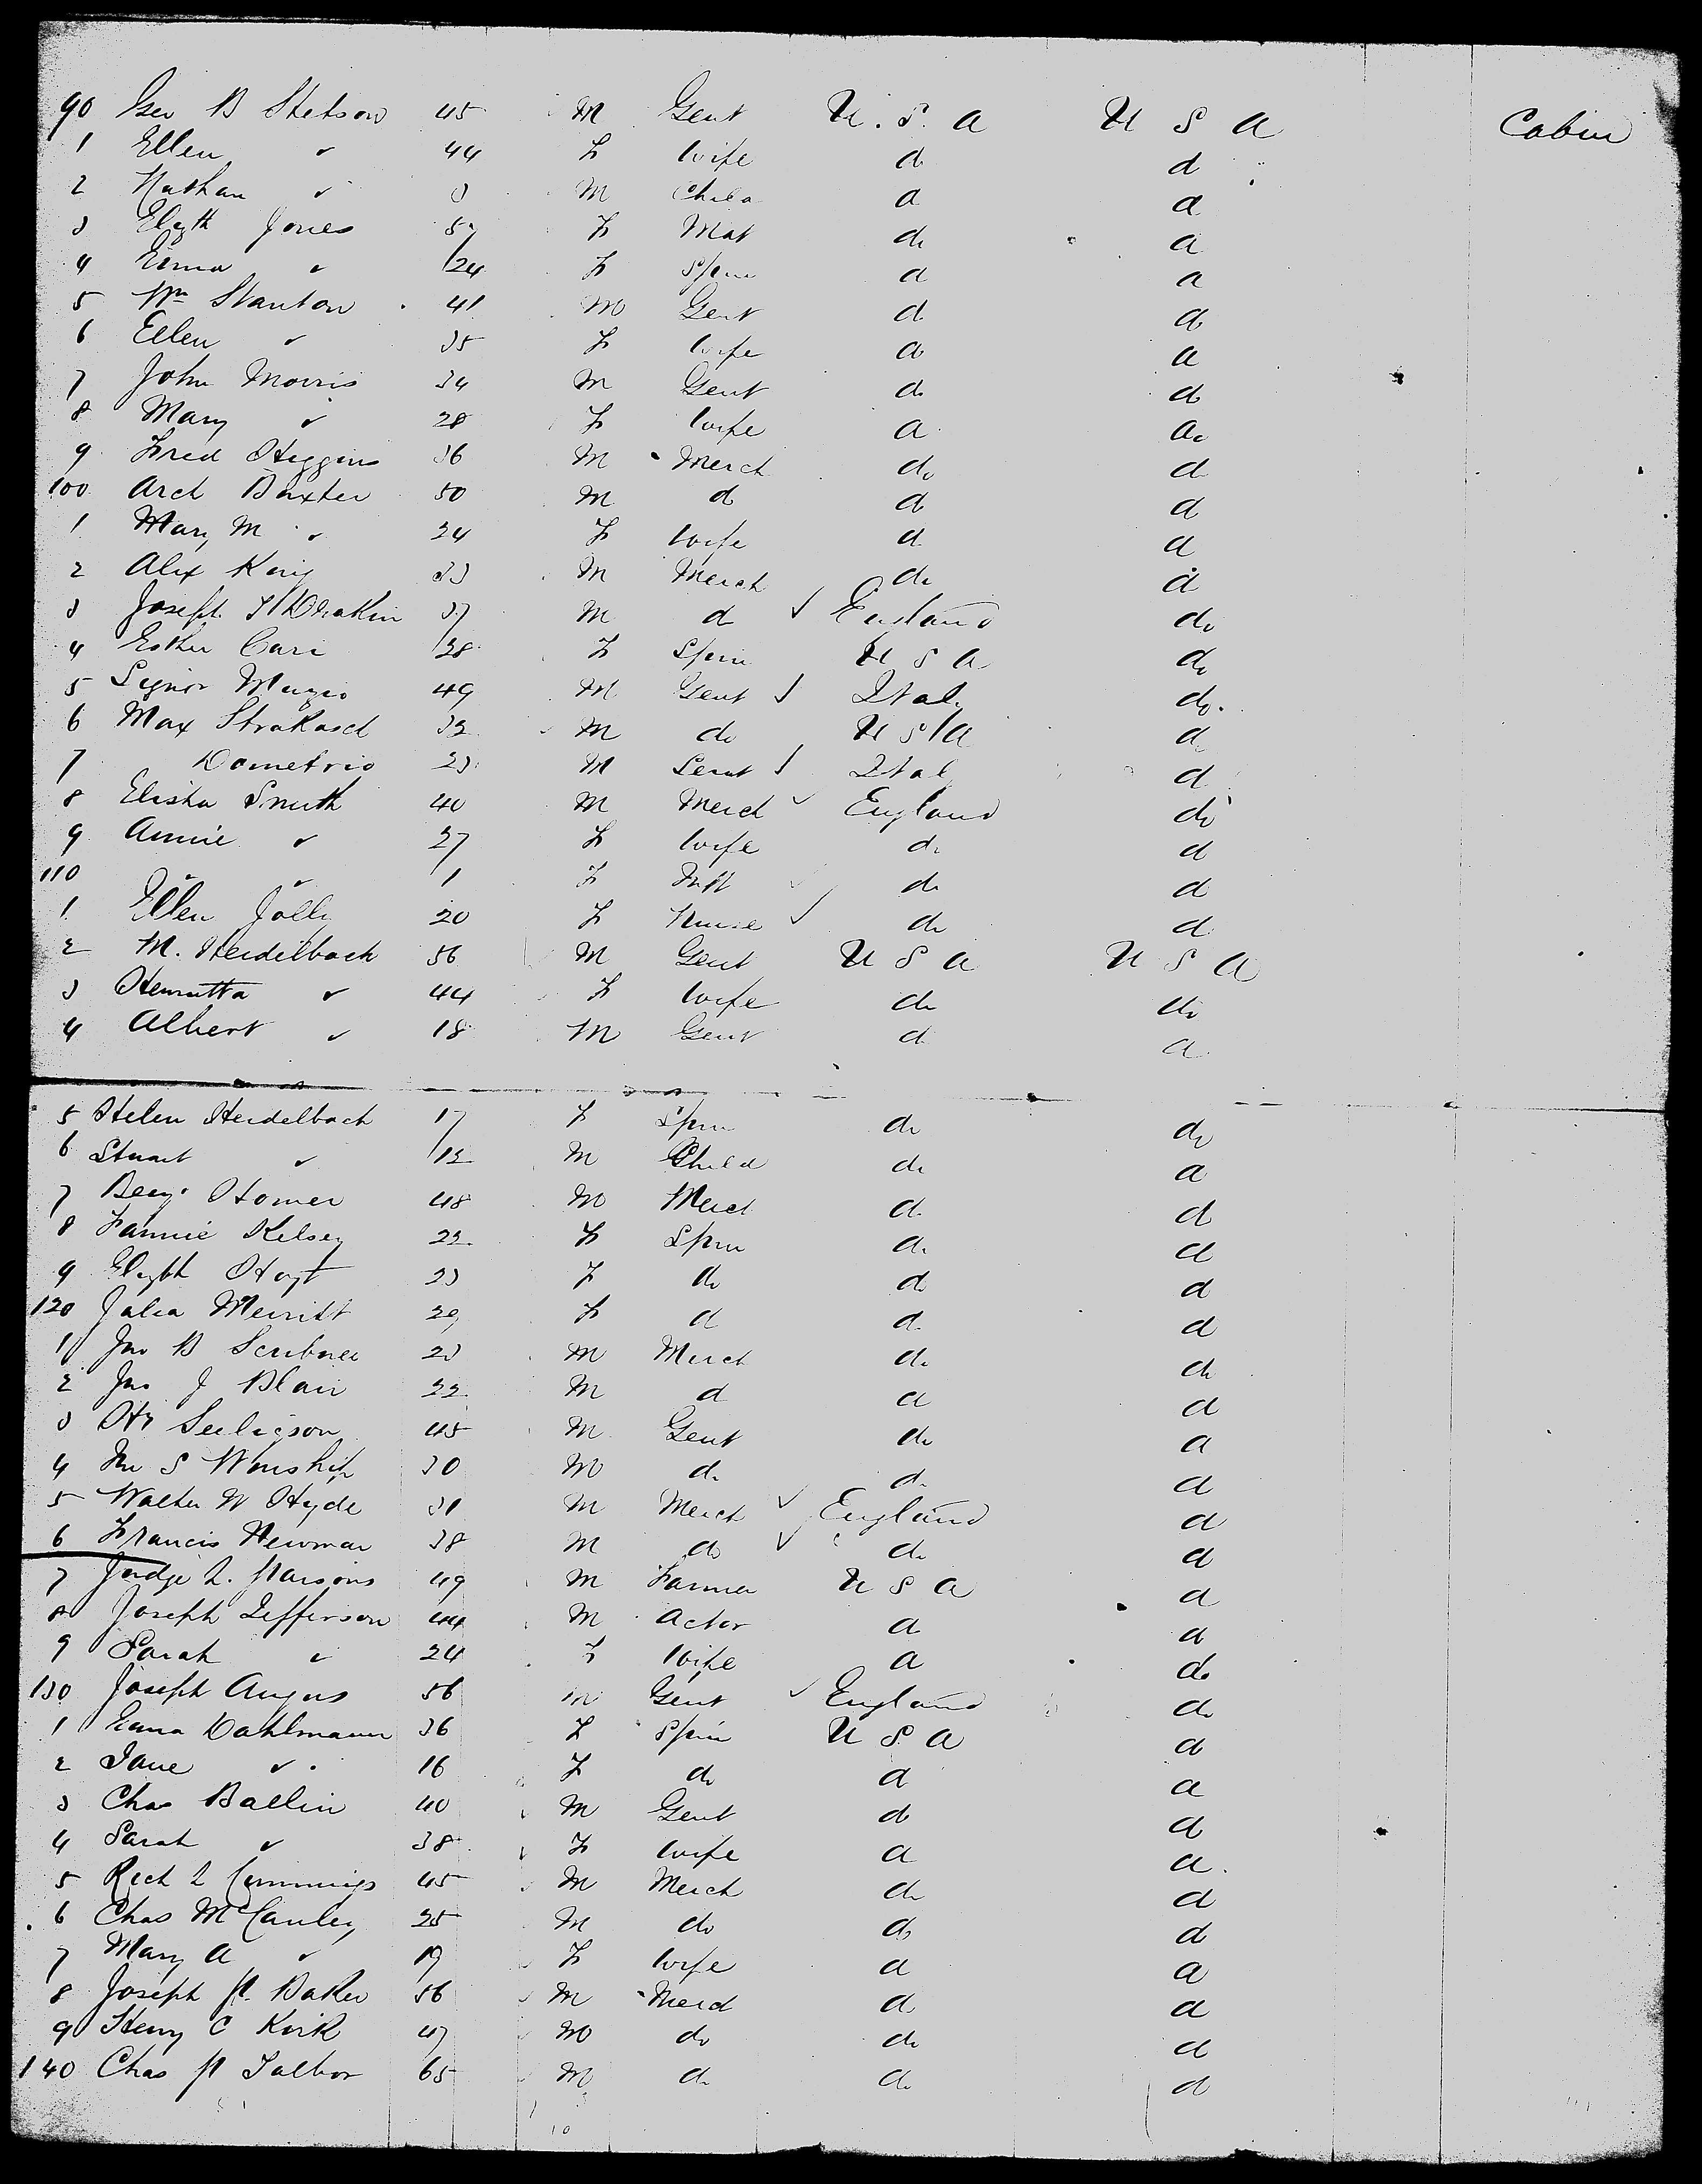 90 Geo B Stetson 45 M Gent U.S.A U S A Cabin
1 Ellen " 44 F Wife do do
2 Nathan " M Child do do
3 Elizth Jones F Mat do do
4 Emma " 24 F Spin do do
5 Wm Stanton 41 M Gent do do
6 Ellen " 35 F Wife do do
7 John Morris 34 M Gent do do
8 Mary " 28 F Wife do do
9 Fred Higgins 36 M Merch do do
100 Arch Baxter 50 M do do do
1 Mary M " 24 F Wife do do
2 Alex King 33 M Merch do do
3 Joseph 37 M do England do
4 Esther 28 F Spin U S A do
5 Signor Muzio 49 M Gent Ital. do.
6 Max Strakosch 32 M do U S A do
7 Dometrio 23 M Servt Ital do
8 Elisha Smith 40 M Merch England do
9 Annie " 27 F Wife do do
110 " " 1 F Inft do do
1 Ellen Jolly 20 F Nurse do do
2 M. Heidelbach 56 M Gent U S A U S A
3 Henrietta " 44 F Wife do do
4 Albert " 18 M Gent do do
5 Helen Heidelbach 17 F Spin do do
6 Stuart " 12 M Child do do
7 Benj. Homer 48 M Merch do do
8 Fannie Kelsey 22 F Spin do do
9 Elizbth Hoyt 23 F do do do
120 Julia Merritt F do do do
1 Jno B Scribner 23 M Merch do do
2 Jno J Blair 22 M do do do
3 Hy Seeligson 45 M Gent do do
4 Jno S Winship 30 M do do do
5 Walter W Hyde 31 M Merch England do
6 Francis Newman 38 M do do do
7 Judge L. Parsons 49 M Farmer U S A do
8 Joseph Jefferson 44 M Actor do do
9 Sarah " 24 F Wife do do
130 Joseph Angus 56 M Gent England do
1 Emma Dahlmann 36 F Spin U S A do
2 Jane " 16 F do do do
3 Chas Ballin 40 M Gent do do
4 Sarah " 38 F Wife do do
5 Rich L Cummings 45 M Merch do do
6 Chas McCauley 25 M do do do
7 Mary A " 19 F Wife do do
8 Joseph P. Baker 56 M Merch do do
9 Henry C Kirk 47 M do do do
140 Chas P Talbot 65 M do do do